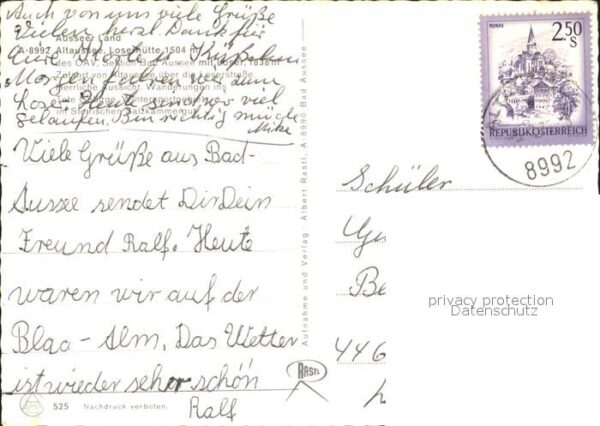 Auch von uns viele Grüße
Vielen herzl. Dank für
Eure
Ausseer Land
A-8992 Altaussee. Loserhütte 1504 m
des ÖAV. Sektion Bad Aussee mit Loser. 1838 m
Morgen
wir zum
Zufahrt von Altaussee über die Loserstraße
herrliche Aussicht. Wanderungen ins
Loser. Heute sind wir viel
im Steirischen Salzkammergut
gelaufen. Bin richtig müde
Viele Grüße aus Bad-
Aussee sendet Dir Dein
Freund Ralf. Heute
waren wir auf der
Blaa - Alm. Das Wetter
ist wieder sehr schön
Ralf
525 Nachdruck verboten.
Aufnahme und Verlag: Albert Rastl, A 8990 Bad Aussee
RASTL
MURAU
2.50
S
REPUBLIK ÖSTERREICH
8992
Schüler
Be
privacy protection
Datenschutz
446